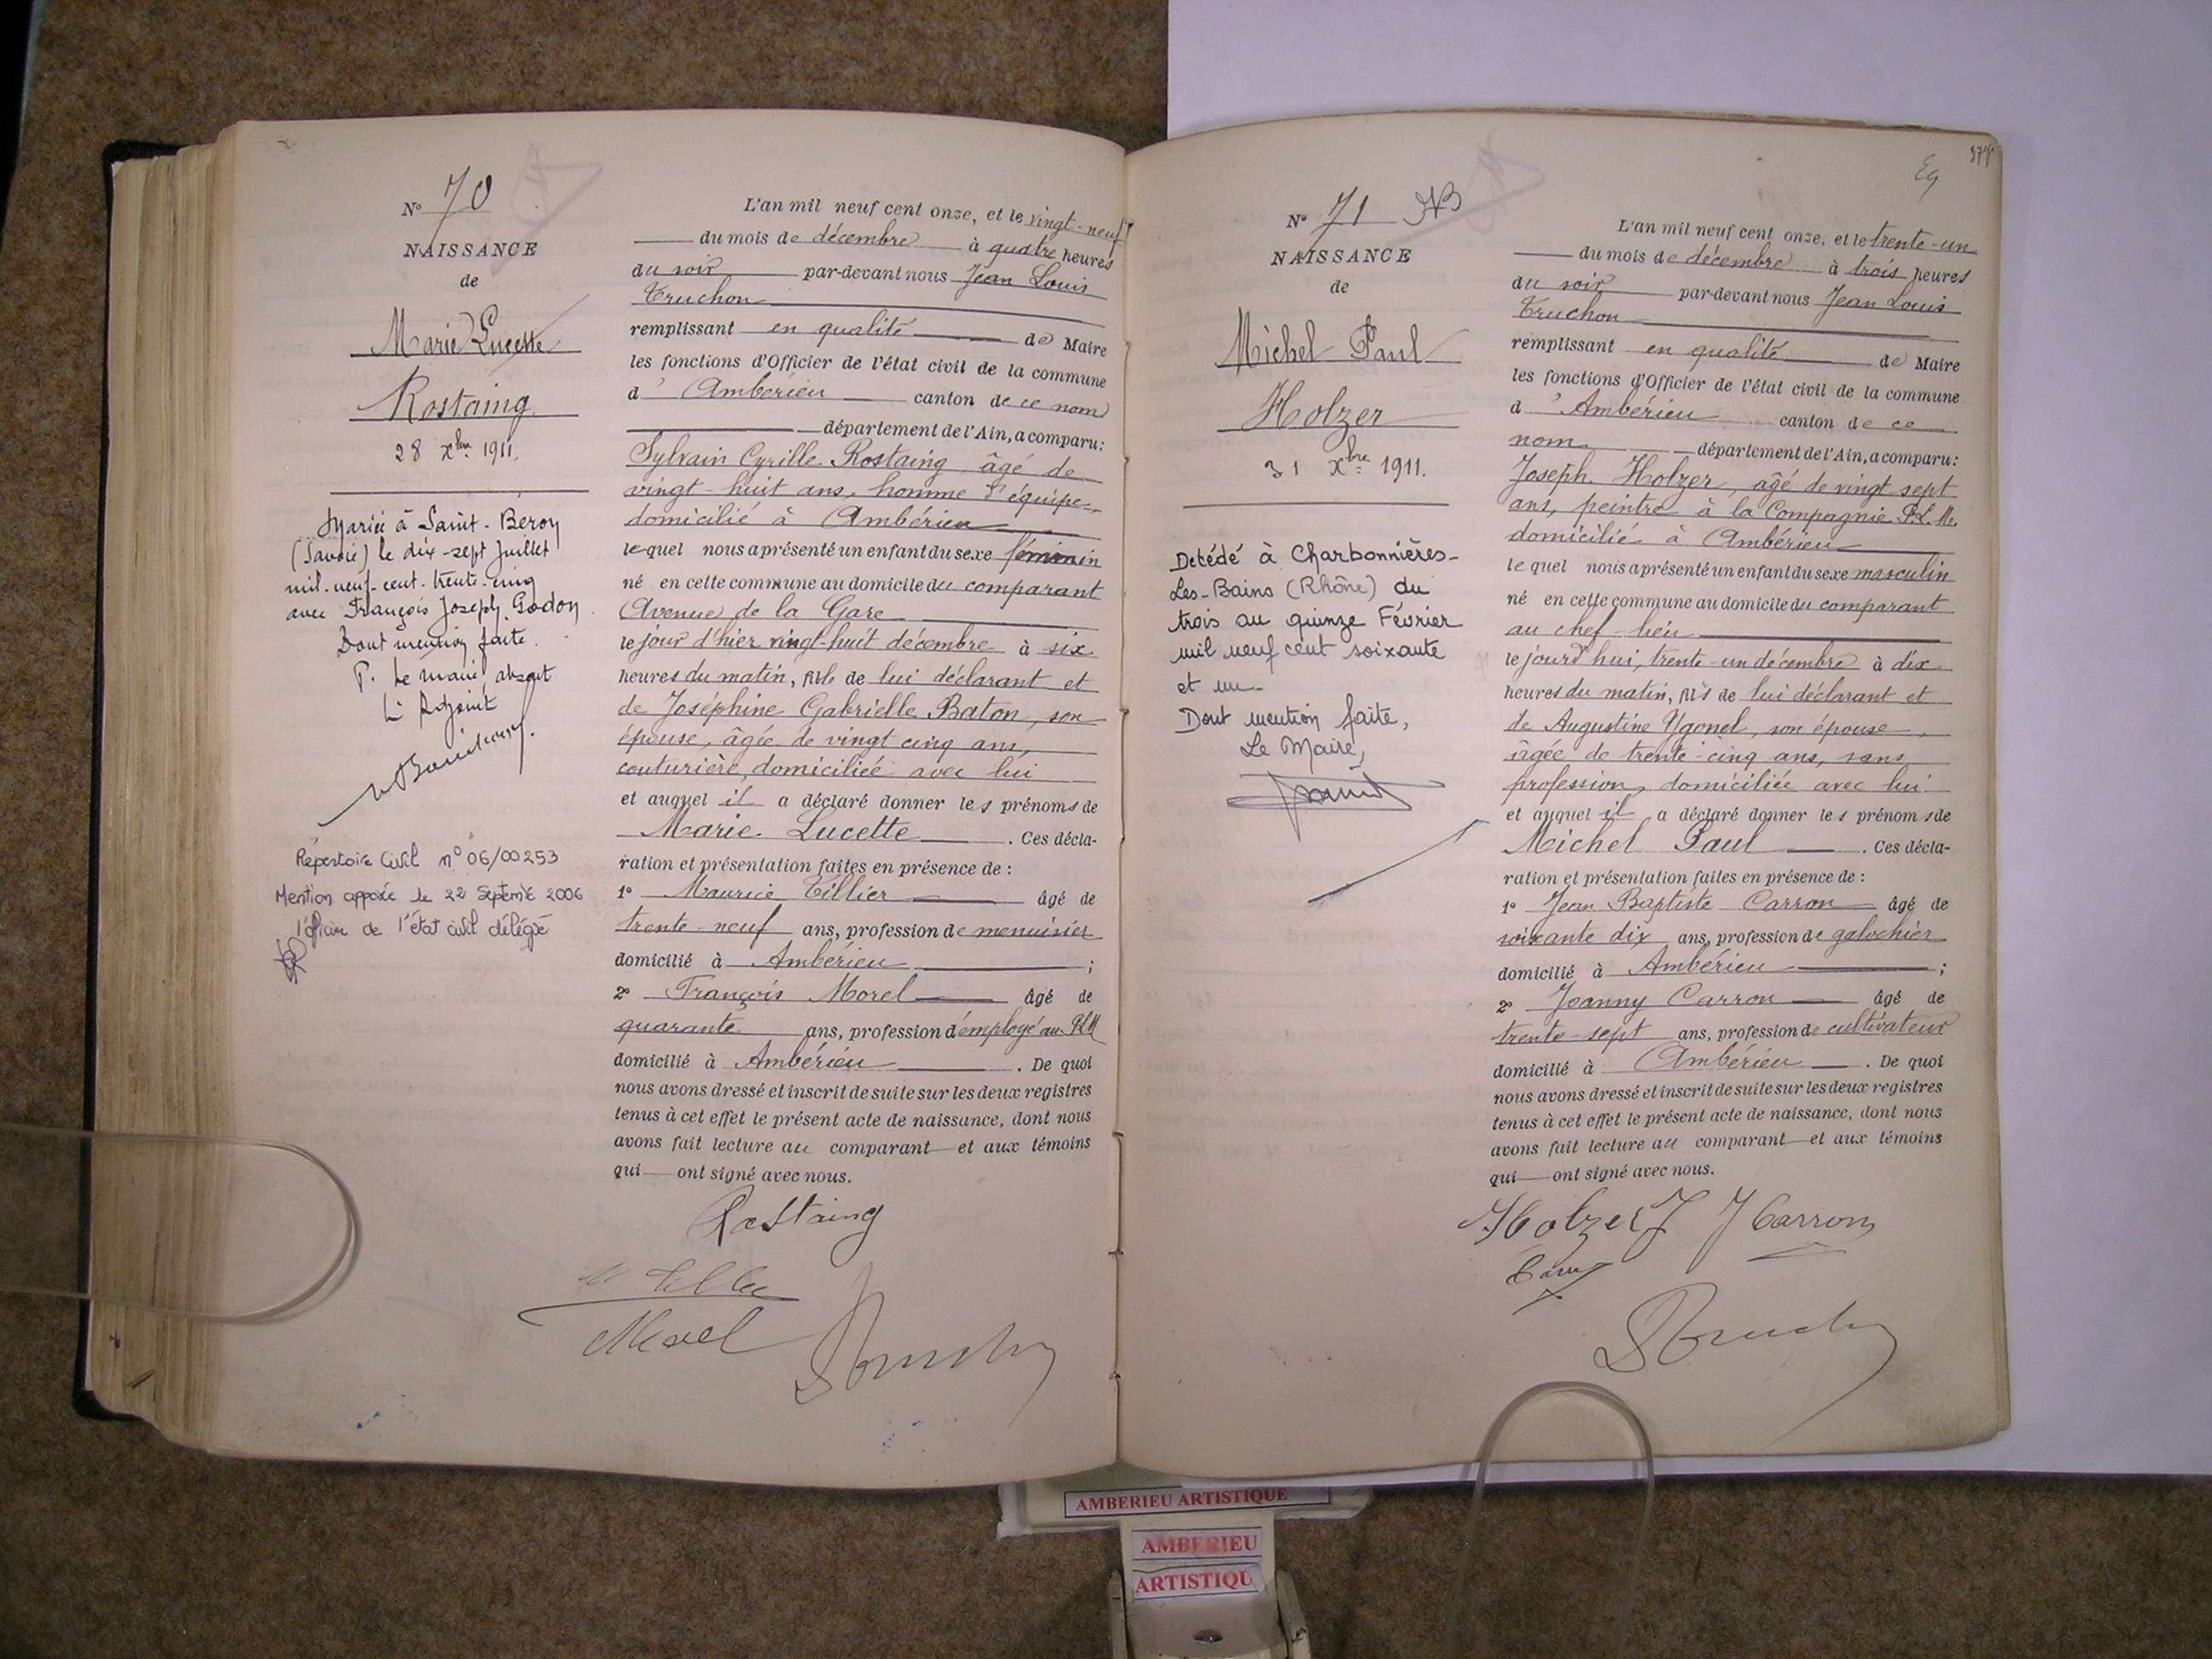 N° 70
NAISSANCE
de
Marie Lucette
Rostaing
28 Xbre 1911.
Mariée à Saint-Beron
(Savoie) le dix-sept Juillet
mil-neuf-cent-trente-cinq
avec François Joseph Godon.
Dont mention faite.
P. Le maire absent
L' Adjoint
Répertoire Civil n° 06/00253
Mention apposée le 22 Septembre 2006
l'officier de l'état civil délégué
L'an mil neuf cent onze, et le vingt-neuf
du mois de décembre à quatre heures
du soir par-devant nous Jean Louis
Truchon
remplissant en qualité de Maire
les fonctions d'Officier de l'état civil de la commune
d'Ambérieu canton de ce nom
département de l'Ain, a comparu:
Sylvain Cyrille Rostaing, âgé de
vingt-huit ans, homme d'équipe,
domicilié à Ambérieu
lequel nous a présenté un enfant du sexe féminin
né en cette commune au domicile du comparant
Avenue de la Gare
le jour d'hier vingt-huit décembre à six
heures du matin, fille de lui déclarant et
de Joséphine Gabrielle Baton, son
épouse, âgée de vingt cinq ans,
couturière, domiciliée avec lui
et auquel il a déclaré donner les prénoms de
Marie Lucette. Ces décla-
ration et présentation faites en présence de :
1° Maurice Tillier âgé de
trente-neuf ans, profession de menuisier
domicilié à Ambérieu ;
2° François Morel âgé de
quarante ans, profession d'employé au PLM
domicilié à Ambérieu. De quoi
nous avons dressé et inscrit de suite sur les deux registres
tenus à cet effet le présent acte de naissance, dont nous
avons fait lecture au comparant et aux témoins
qui ont signé avec nous.
Rostaing
Morel
N° 71
NAISSANCE
de
Michel Paul
Holzer
31 Xbre 1911.
Décédé à Charbonnières-
Les-Bains (Rhône) du
trois au quinze Février
mil neuf cent soixante
et un
Dont mention faite,
Le Maire,
L'an mil neuf cent onze, et le trente-un
du mois de décembre à trois heures
du soir par-devant nous Jean Louis
Truchon
remplissant en qualité de Maire
les fonctions d'Officier de l'état civil de la commune
d'Ambérieu canton de ce
nom département de l'Ain, a comparu:
Joseph Holzer, âgé de vingt sept
ans, peintre à la Compagnie P.L.M.
domicilié à Ambérieu
lequel nous a présenté un enfant du sexe masculin
né en cette commune au domicile du comparant
au chef-lieu
le jourd'hui, trente-un décembre à dix
heures du matin, fils de lui déclarant et
de Augustine Ygonel, son épouse,
âgée de trente-cinq ans, sans
profession, domiciliée avec lui
et auquel il a déclaré donner les prénoms de
Michel Paul. Ces décla-
ration et présentation faites en présence de :
1° Jean Baptiste Carron âgé de
soixante dix ans, profession de galochier
domicilié à Ambérieu ;
2° Joanny Carron âgé de
trente-sept ans, profession de cultivateur
domicilié à Ambérieu. De quoi
nous avons dressé et inscrit de suite sur les deux registres
tenus à cet effet le présent acte de naissance, dont nous
avons fait lecture au comparant et aux témoins
qui ont signé avec nous.
Holzer J J Carron
AMBERIEU ARTISTIQUE
AMBERIEU
ARTISTIQU